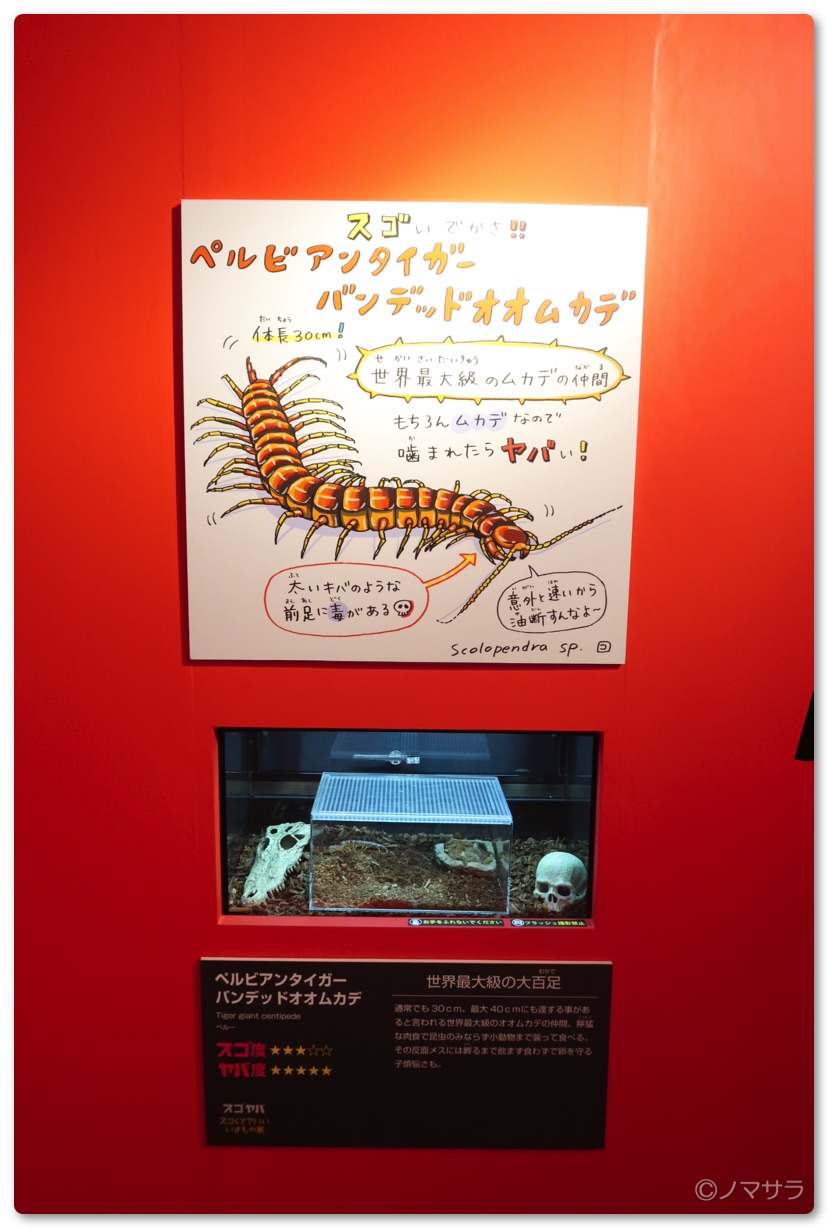 スゴいでかさ!!
ペルビアンタイガー
バンデッドオオムカデ
たいちょう
体長30cm!
せかいさいだいきゅう なかま
世界最大級のムカデの仲間
もちろんムカデなので
か
噛まれたらヤバい!
ふと
太いキバのような
まえあし どく
前足に毒がある
いがい はや
意外と速いから
ゆだん
油断すんなよ~
Scolopendra sp.
お手をふれないでください フラッシュ撮影禁止
ペルビアンタイガー
バンデッドオオムカデ
Tiger giant centipede
ペルー
スゴ度 ★★★☆☆
ヤバ度 ★★★★★
スゴヤバ
スゴくてヤバい
いきもの展
むかで
世界最大級の大百足
通常でも30cm、最大40cmにも達する事があ
ると言われる世界最大級のオオムカデの仲間。獰猛
な肉食で昆虫のみならず小動物まで襲って食べる。
その反面メスには孵るまで飲まず食わずで卵を守る
子煩悩さも。
©ノマサラ